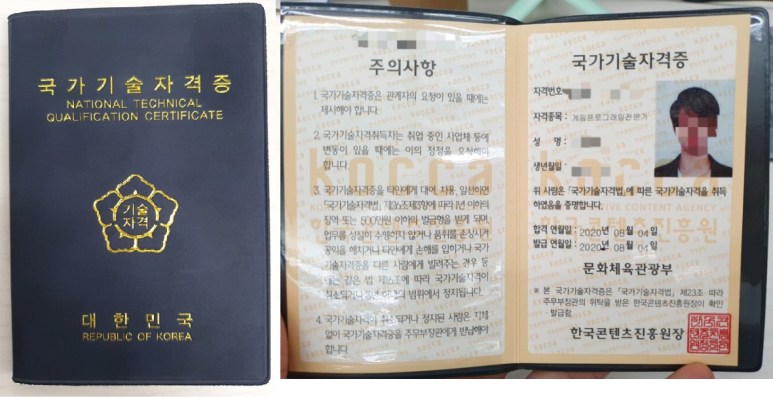 국가기술자격증
NATIONAL TECHNICAL
QUALIFICATION CERTIFICATE
기술
자격
대한민국
REPUBLIC OF KOREA
주의사항
1. 국가기술자격증은 관계자의 요청이 있을 때에는
제시해야 합니다.
2. 국가기술자격취득자는 취업 중인 사업체 등에
변동이 있을 때에는 이의 정정을 요청해야
합니다.
3. 국가기술자격증을 타인에게 대여, 차용, 알선하면
「국가기술자격법」 제26조제3항에 따라 1년 이하의
징역 또는 500만원 이하의 벌금형을 받게 되며,
업무를 성실히 수행하지 않거나 품위를 손상시켜
공익을 해치거나 타인에게 손해를 입히거나 국가
기술자격증을 다른 사람에게 빌려주는 경우 등
에는 같은 법 제16조에 따라 국가기술자격이
취소되거나 범위에서 정지됩니다.
4. 국가기술자격이 취소되거나 정지된 사람은 지체
없이 국가기술자격증을 주무부장관에게 반납해야
합니다.
국가기술자격증
자격번호:
자격종목 : 게임프로그래밍전문가
성 명 :
생년월일 :
위 사람은 「국가기술자격법」에 따른 국가기술자격을 취득
하였음을 증명합니다.
합격 연월일 : 2020년 08월 04일
발급 연월일 : 2020년 08월 04일
문화체육관광부
※ 본 국가기술자격증은 「국가기술자격법」 제23조 따라
주무부장관의 위탁을 받은 한국콘텐츠진흥원장이 확인
·발급함.
한국콘텐츠진흥원장
kocca
CREATIVE CONTENT AGENCY
한국콘텐츠진흥원